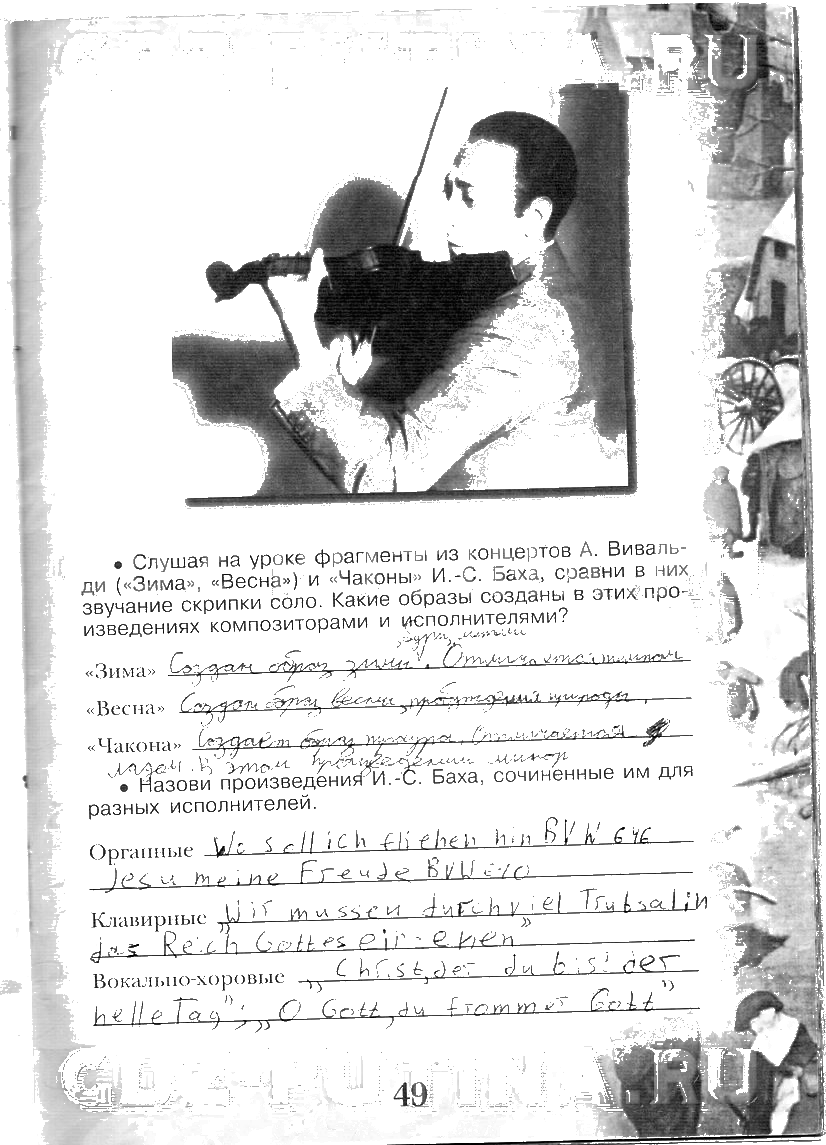 • Слушая на уроке фрагменты из концертов А. Виваль-
ди («Зима», «Весна») и «Чаконы» И.-С. Баха, сравни в них
звучание скрипки соло. Какие образы созданы в этих про-
изведениях композиторами и исполнителями?
, бури, метели
«Зима» Создан образ зимы. Отличается темпом
«Весна» Создан образ весны, пробуждения природы.
«Чакона» Создаёт образ траура. Отличается
ладом. В этом произведении минор
• Назови произведения И.-С. Баха, сочиненные им для
разных исполнителей.
Органные Wo soll ich fliehen hin BVW 646
Jesu meine Freude BVW 610
Клавирные „Wir mussen durch viel Trubsal in
das Reich Gottes
Вокально-хоровые „Christ, der du bist der
helle Tag"; „O Gott, du frommer Gott"
49